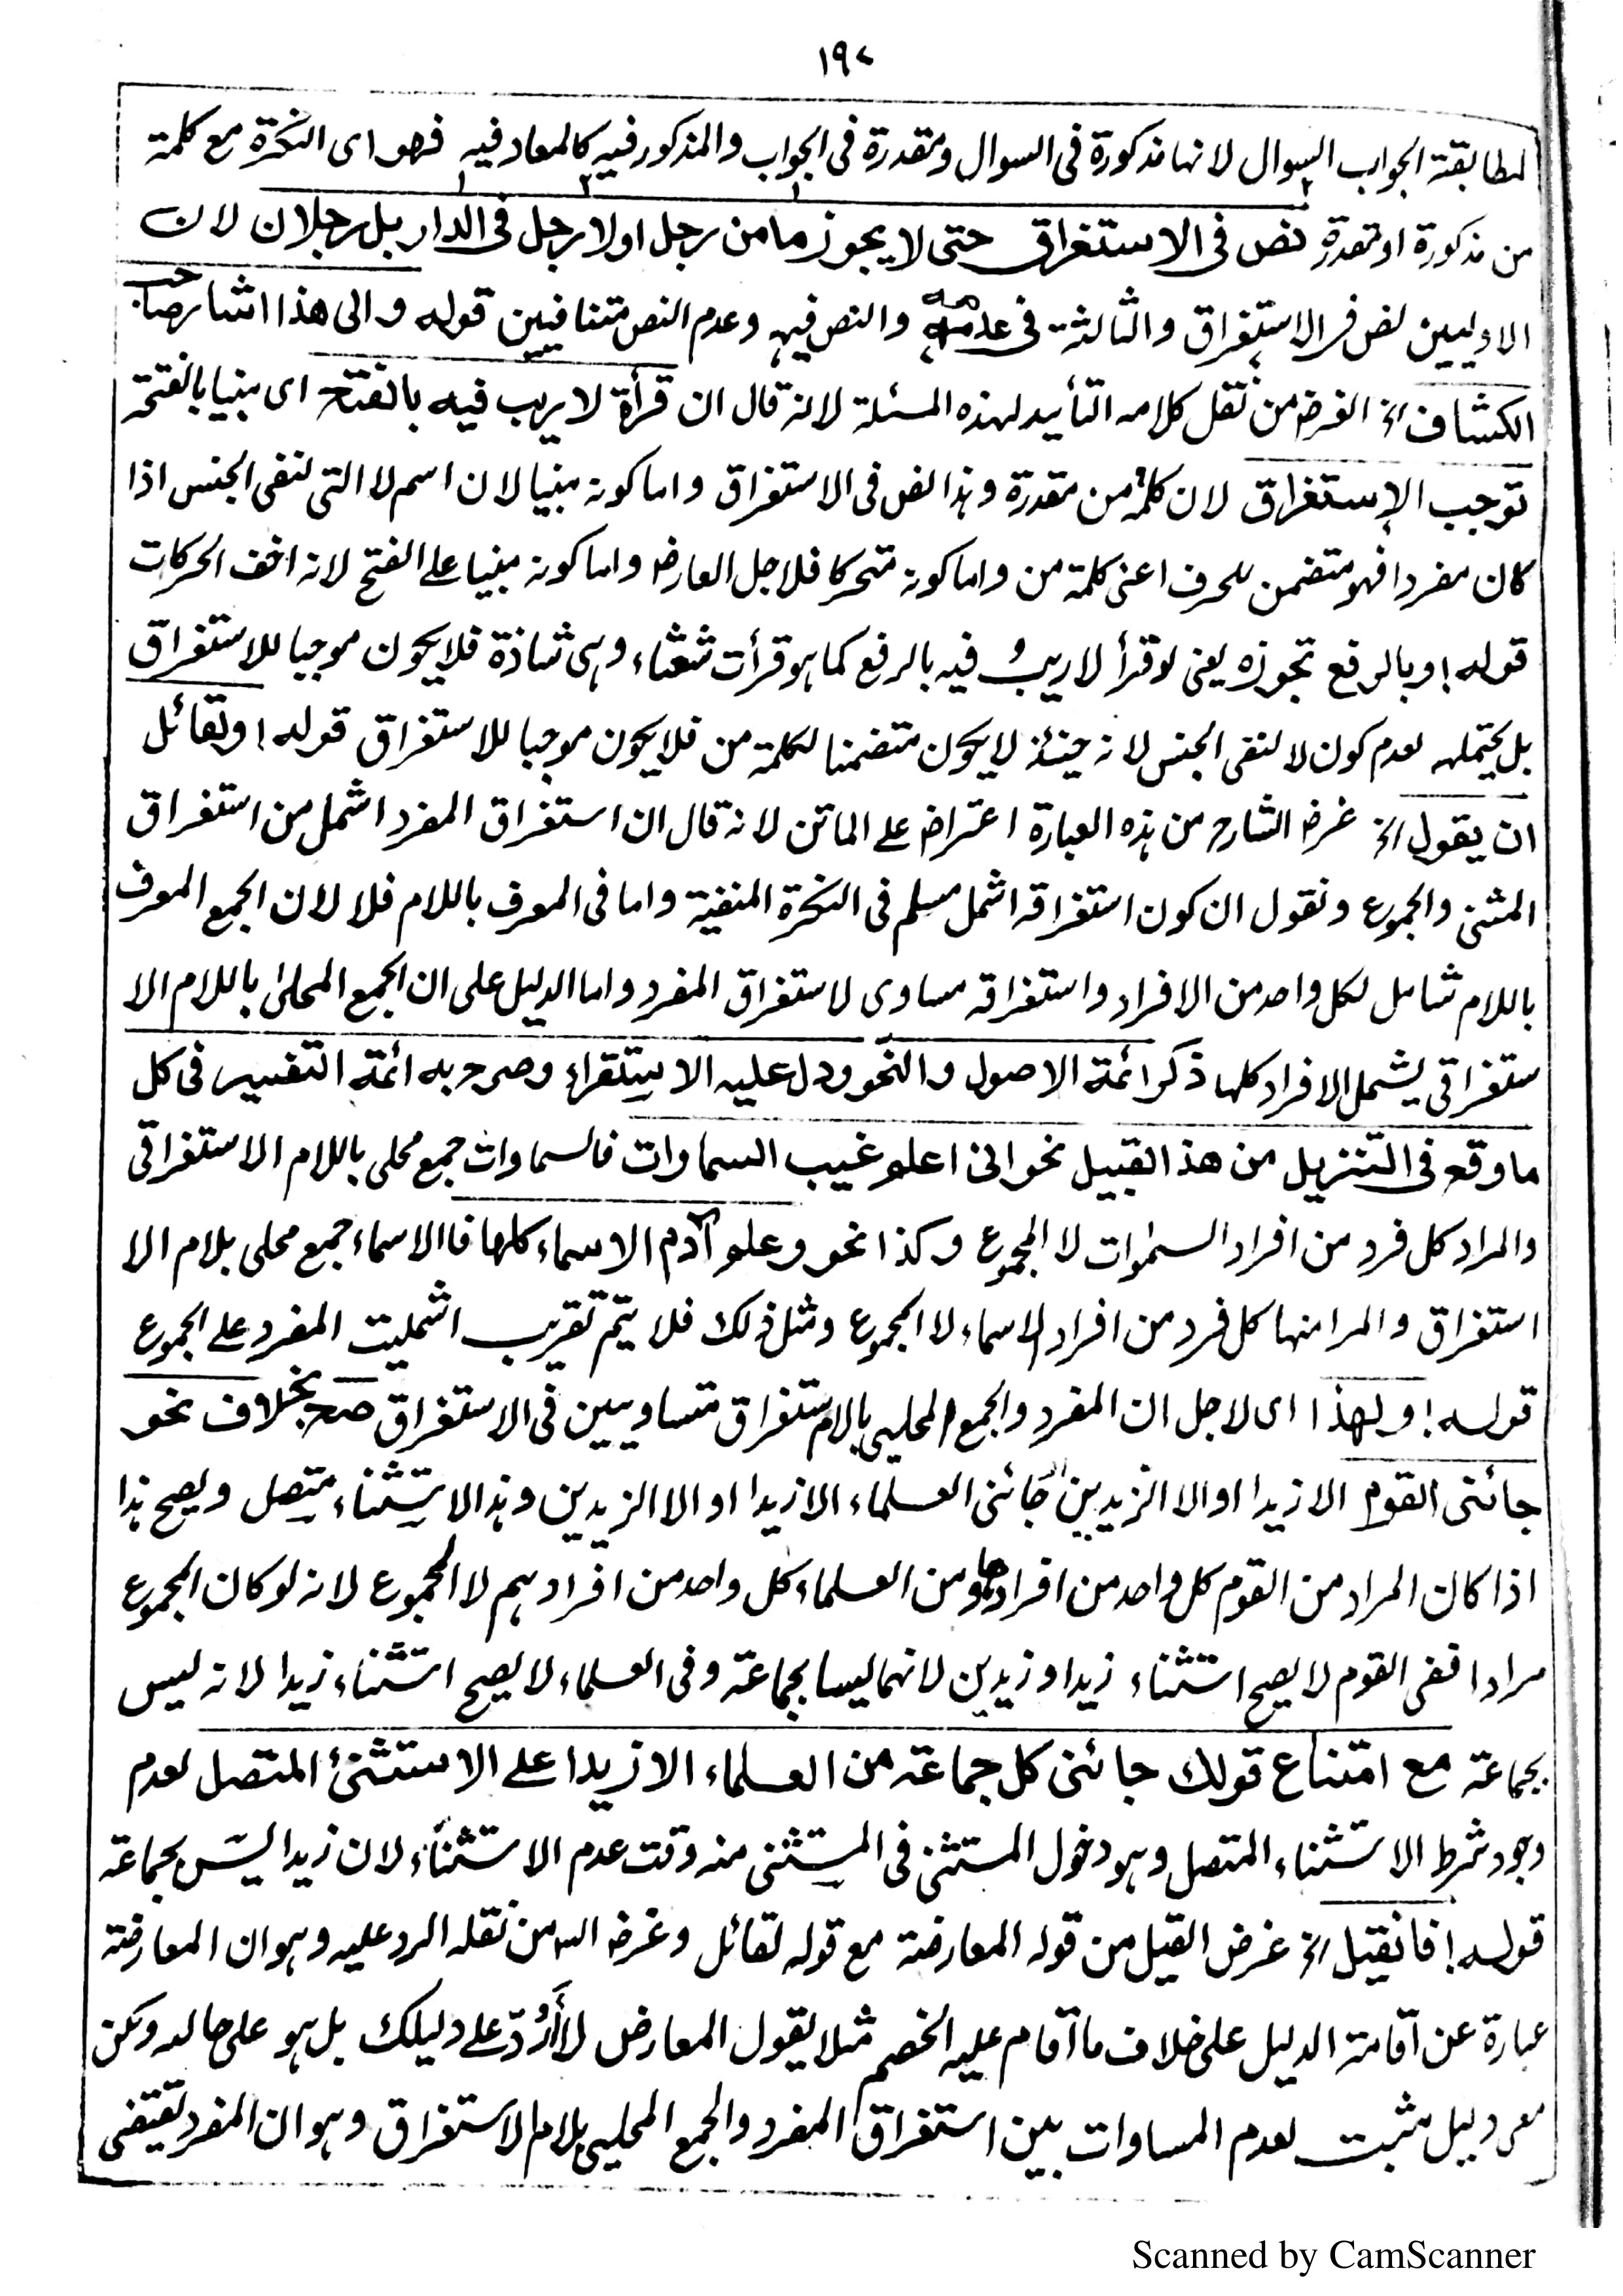 ١٩٧
لمطابقة الجواب السوال لانها مذكورة فى السوال ومقدرة فى الجواب والمذكور فيه كالمعاد فيه فهو اى النكرة مع كلمة
من مذكورة او مقدرة نص فى الاستغراق حتى لا يجوز ما من رجل او لا رجل فى الدار بل رجلان لان
الاوليين نص فى الاستغراق والثالثة فى عدمه والنص فيه وعدم النص متنافيين قوله والى هذا اشار صاحب
الكشاف الخ الغرض من نقل كلامه التأييد لهذه المسئلة لانه قال ان قرأة لا ريب فيه بالفتح اى مبنيا بالفتحة
توجب الاستغراق لان كلمة من مقدرة وهذا نص فى الاستغراق واما كونه مبنيا لان اسم لا التى لنفى الجنس اذا
كان مفردا فهو متضمن للحرف اعنى كلمة من واما كونه متحركا فلاجل العارض واما كونه مبنيا على الفتح لانه اخف الحركات
قوله ! وبالرفع تجوزه يعنى لو قرأ لا ريبٌ فيه بالرفع كما هو قرأت شعثاء وهى شاذة فلا يكون موجبا للاستغراق
بل يحتمله لعدم كون لا لنفى الجنس لانه حينئذ لا يكون متضمنا لكلمة من فلا يكون موجبا للاستغراق قوله ! ولقائل
ان يقول الخ غرض الشارح من هذه العبارة اعتراض على الماتن لانه قال ان استغراق المفرد اشمل من استغراق
المثنى والجموع ونقول ان كون استغراقه اشمل مسلم فى النكرة المنفية واما فى المعرف باللام فلا لان الجمع المعرف
باللام شامل لكل واحد من الافراد واستغراقه مساوى لاستغراق المفرد واما الدليل على ان الجمع المحلى باللام الا
ستغراقى يشمل الافراد كلها ذكر ائمة الاصول والنحو ودل عليه الاستقراء وصرح به ائمة التفسير فى كل
ما وقع فى التنزيل من هذ القبيل نحو انى اعلم غيب السماوات فالسماوات جمع محلى باللام الاستغراقى
والمراد كل فرد من افراد السموات لا المجموع وكذا نحو وعلم آدم الاسماء كلها فا الاسماء جمع محلى بلام الا
استغراق والمرا منها كل فرد من افراد الاسماء لا المجموع ومثل ذلك فلا يتم تقريب اشمليت المفرد على الجموع
قوله ! ولهذا اى لاجل ان المفرد والجمع المحليى بالام ستغراق متساويين فى الاستغراق صح بخلاف نحو
جائنى القوم الا زيدا او الا الزيدين جائنى العلماء الا زيدا او الا الزيدين وهذا الاستثناء متصل ويصح هذا
اذا كان المراد من القوم كل واحد من افرادها ومن العلماء كل واحد من افرادهم لا المجموع لانه لو كان المجموع
مرادا ففى القوم لا يصح استثناء زيدا وزيدين لانهما ليسا بجماعة وفى العلماء لا يصح استثناء زيدا لانه ليس
بجماعة مع امتناع قولك جائنى كل جماعة من العلماء الا زيدا على الاستثنئ المتصل لعدم
وجود شرط الاستثناء المتصل وهو دخول المستثنى فى المستثنى منه وقت عدم الاستثناء لان زيدا ليس بجماعة
قوله ! فانقيل الخ غرض القيل من قوله المعارضة مع قوله لقائل وغرض الش من نقله الرد عليه وهو ان المعارضة
عبارة عن اقامة الدليل على خلاف ما اقام عليه الخصم مثلا يقول المعارض لا أَرُدّ على دليلك بل هو على حاله ولكن
معى دليل مثبت لعدم المساوات بين استغراق المفرد والجمع المحليى بلام الاستغراق وهو ان المفرد يقتضى
Scanned by CamScanner